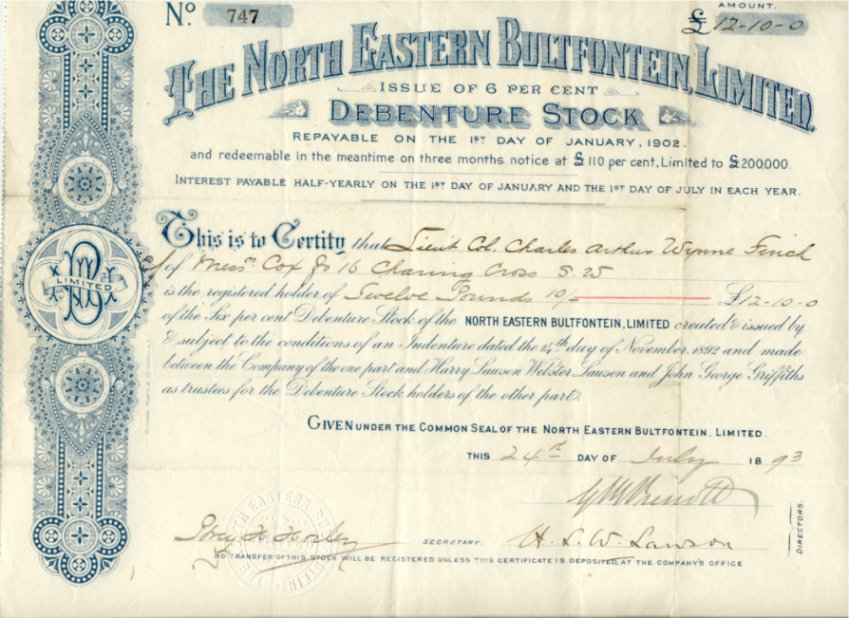 AMOUNT.
No. 747 £12-10-0
THE NORTH EASTERN BULTFONTEIN, LIMITED.
ISSUE OF 6 PER CENT
DEBENTURE STOCK
REPAYABLE ON THE 1ST DAY OF JANUARY, 1902.
and redeemable in the meantime on three months notice at £110 per cent, Limited to £200,000.
INTEREST PAYABLE HALF-YEARLY ON THE 1ST DAY OF JANUARY AND THE 1ST DAY OF JULY IN EACH YEAR.
This is to Certify that Lieut Col. Charles Arthur Wynne Finch
of Messrs Cox 16 Charing Cross S.W
is the registered holder of Twelve Pounds 10/- £12-10-0
of the Six per cent Debenture Stock of the NORTH EASTERN BULTFONTEIN, LIMITED created & issued by
& subject to the conditions of an Indenture dated the 14th day of November 1892 and made
between the Company of the one part and Harry Lawson Webster Lawson and John George Griffiths
as trustees for the Debenture Stock holders of the other part.
LIMITED
GIVEN UNDER THE COMMON SEAL OF THE NORTH EASTERN BULTFONTEIN, LIMITED.
THIS 24th DAY OF July 1893
DIRECTORS.
SECRETARY. H. L. W. Lawson
NO TRANSFER OF THIS STOCK WILL BE REGISTERED UNLESS THIS CERTIFICATE IS DEPOSITED AT THE COMPANY'S OFFICE